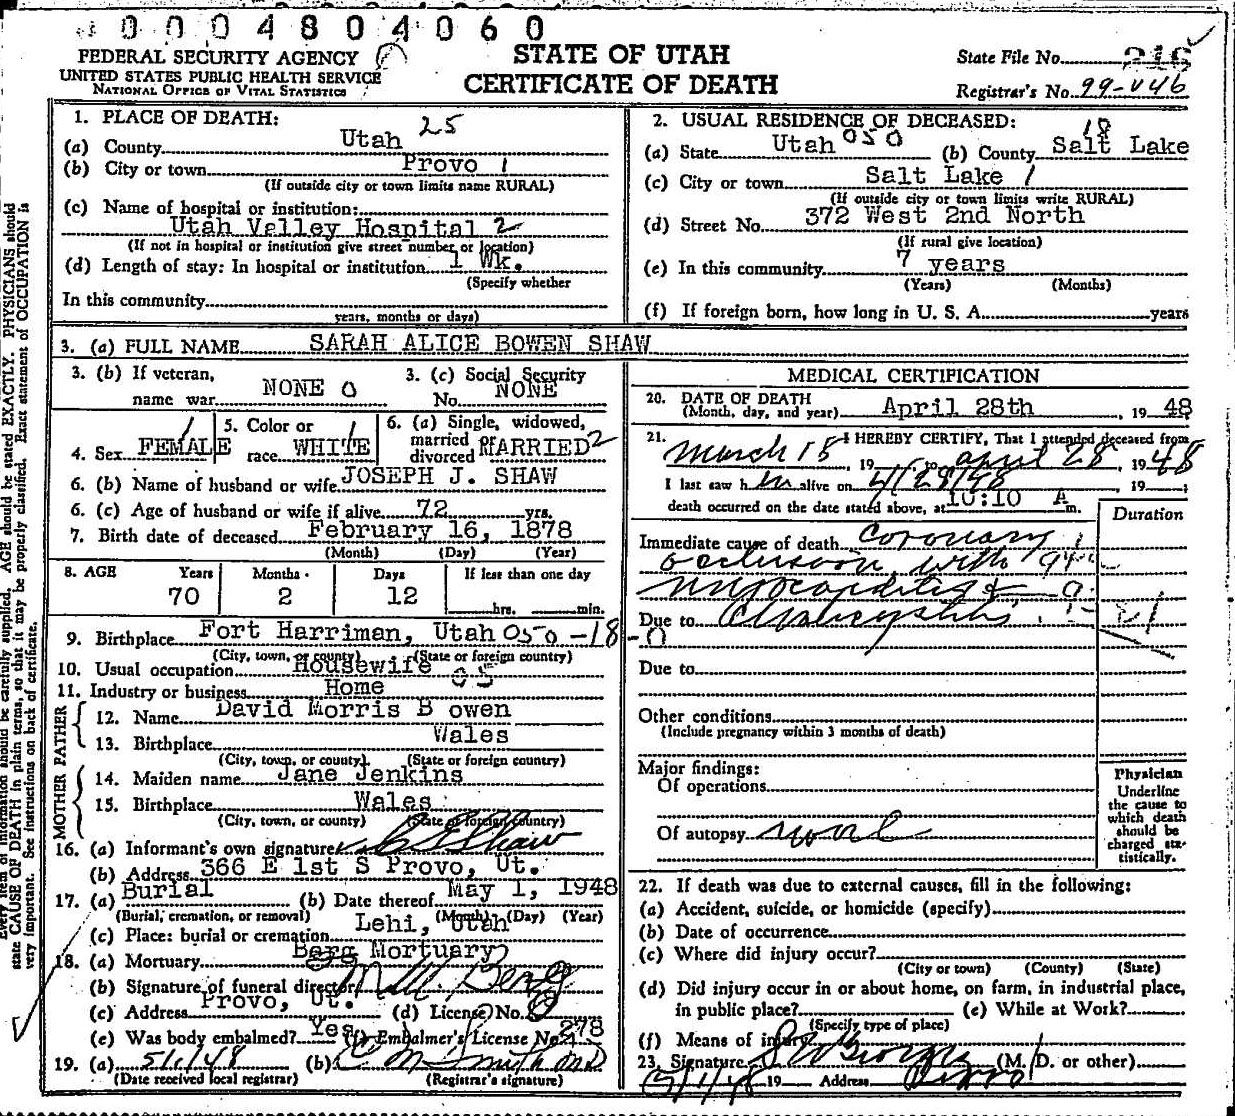 0004804060
FEDERAL SECURITY AGENCY
UNITED STATES PUBLIC HEALTH SERVICE
NATIONAL OFFICE OF VITAL STATISTICS
STATE OF UTAH
CERTIFICATE OF DEATH
State File No. 216
Registrar's No. 99-446
1. PLACE OF DEATH: 25
(a) County Utah
(b) City or town Provo 1
(If outside city or town limits name RURAL)
(c) Name of hospital or institution:
Utah Valley Hospital 2
(If not in hospital or institution give street number or location)
(d) Length of stay: In hospital or institution 1 Wk.
(Specify whether
In this community
years, months or days)
2. USUAL RESIDENCE OF DECEASED: 18
(a) State Utah 050 (b) County Salt Lake
(c) City or town Salt Lake 1
(If outside city or town limits write RURAL)
(d) Street No. 372 West 2nd North
(If rural give location)
(e) In this community 7 years
(Years) (Months)
(f) If foreign born, how long in U. S. A. years
3. (a) FULL NAME SARAH ALICE BOWEN SHAW
3. (b) If veteran, name war NONE 0
3. (c) Social Security No. NONE
4. Sex FEMALE 1
5. Color or race WHITE 1
6. (a) Single, widowed, married or divorced MARRIED 2
6. (b) Name of husband or wife JOSEPH J. SHAW
6. (c) Age of husband or wife if alive 72 yrs.
7. Birth date of deceased February 16, 1878
(Month) (Day) (Year)
8. AGE Years Months Days If less than one day
70 2 12 hrs. min.
9. Birthplace Fort Harriman, Utah 050-18-0
(City, town, or county) (State or foreign country)
10. Usual occupation Housewife
11. Industry or business Home 05
FATHER
12. Name David Morris B owen
13. Birthplace Wales
(City, town, or county) (State or foreign country)
MOTHER
14. Maiden name Jane Jenkins
15. Birthplace Wales
(City, town, or county) (State or foreign country)
16. (a) Informant's own signature Shaw
(b) Address 366 E 1st S Provo, Ut.
17. (a) Burial (b) Date thereof May 1, 1948
(Burial, cremation, or removal) (Month) (Day) (Year)
(c) Place: burial or cremation Lehi, Utah
18. (a) Mortuary Berg Mortuary
(b) Signature of funeral director Berg
(c) Address Provo, Ut. (d) License No.
(e) Was body embalmed? Yes (f) Embalmer's License No. 278
19. (a) 5/1/48 (b) C M Smith MD
(Date received local registrar) (Registrar's signature)
MEDICAL CERTIFICATION
20. DATE OF DEATH
(Month, day, and year) April 28th, 1948
21. I HEREBY CERTIFY, That I attended deceased from
March 18, 19 to april 28 1948
I last saw h alive on 4/28/48, 19 ;
death occurred on the date stated above, at 10:10 A m.
Duration
Immediate cause of death Coronary
occlusion with 94
myocarditis &
Due to
Due to
Other conditions
(Include pregnancy within 3 months of death)
Major findings:
Of operations
Of autopsy none
Physician
Underline
the cause to
which death
should be
charged sta-
tistically.
22. If death was due to external causes, fill in the following:
(a) Accident, suicide, or homicide (specify)
(b) Date of occurrence
(c) Where did injury occur?
(City or town) (County) (State)
(d) Did injury occur in or about home, on farm, in industrial place,
in public place? (e) While at Work?
(Specify type of place)
(f) Means of injury
23. Signature (M. D. or other)
5/1/48 19 Address Provo
Every item of information should be carefully supplied. AGE should be stated EXACTLY. PHYSICIANS should
state CAUSE OF DEATH in plain terms, so that it may be properly classified. Exact statement of OCCUPATION is
very important. See instructions on back of certificate.